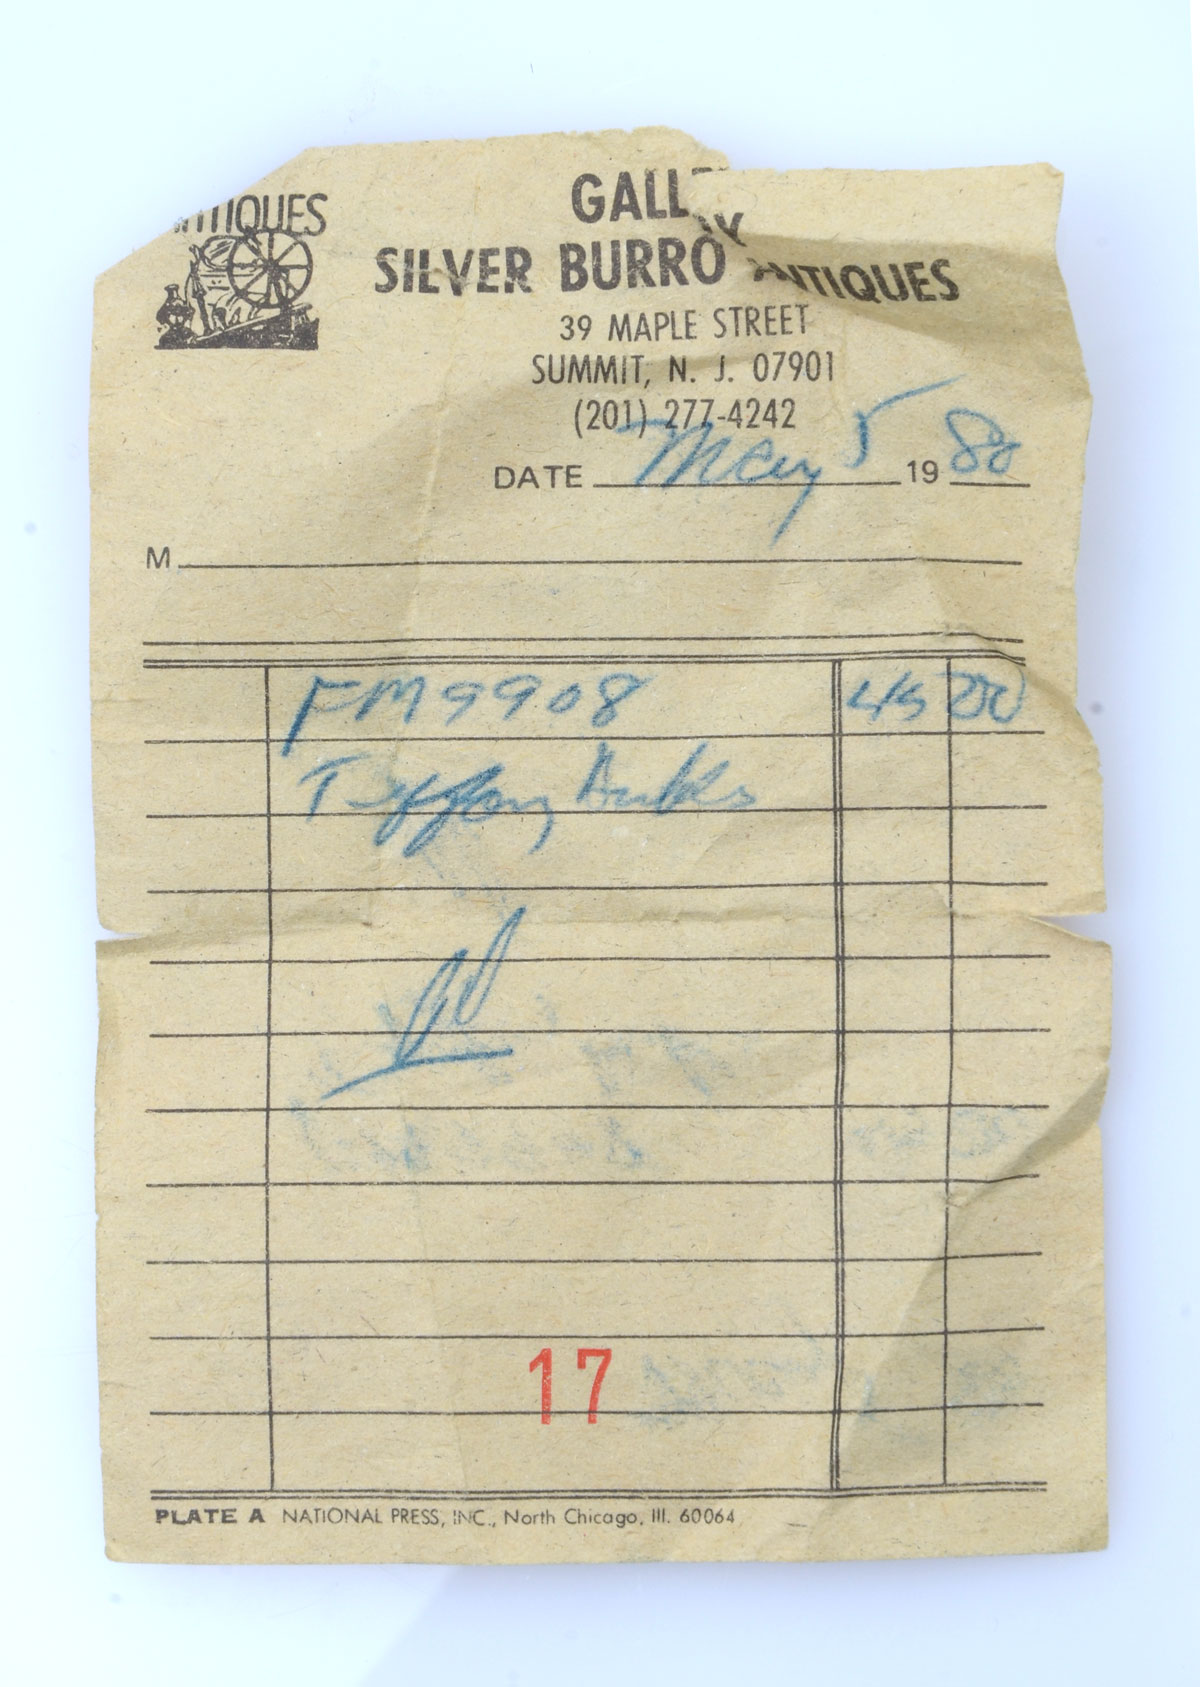 ANTIQUES
GALLERY
SILVER BURRO ANTIQUES
39 MAPLE STREET
SUMMIT, N. J. 07901
(201) 277-4242
DATE May 5 19 80
M
FM9908 45 00
Tiffany
17
PLATE A NATIONAL PRESS, INC., North Chicago, Ill. 60064